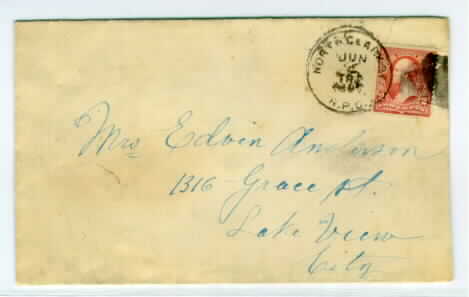 NORTH CLARK
JUN
R.P.O.
Mrs Edvin Anderson
1316 Grace St.
Lake View
City